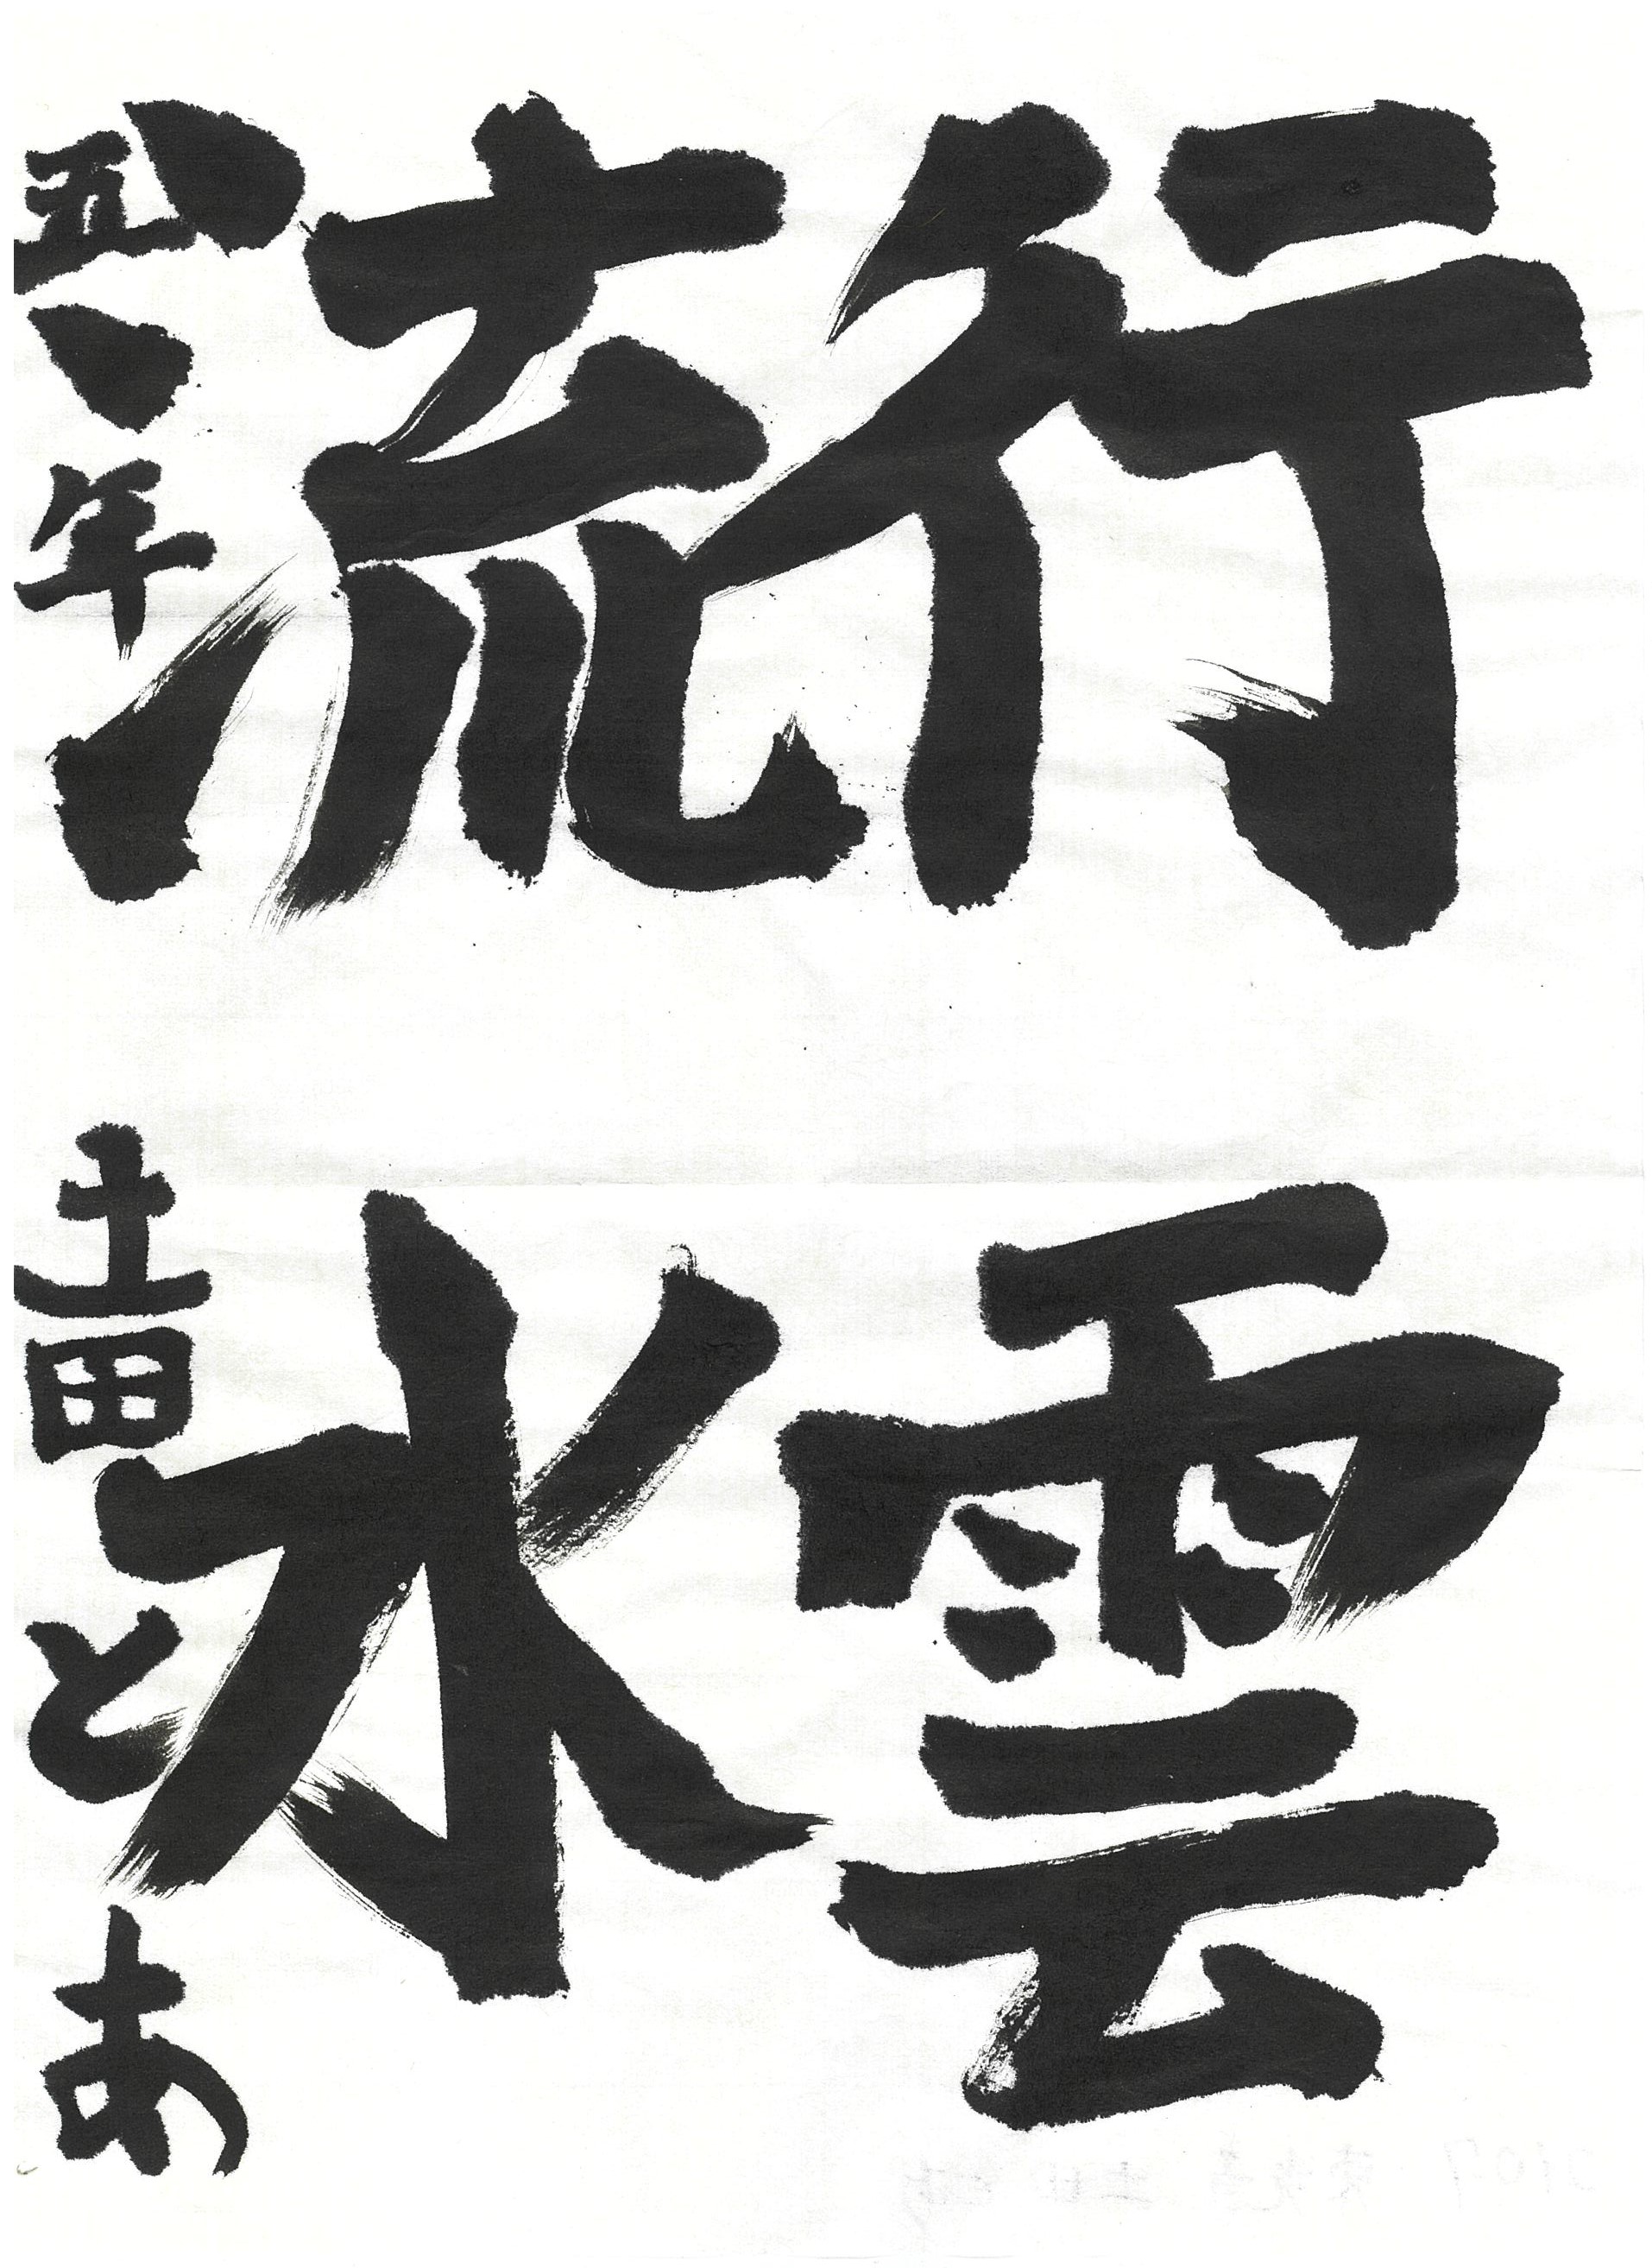 行雲
流水
五年 土田とあ